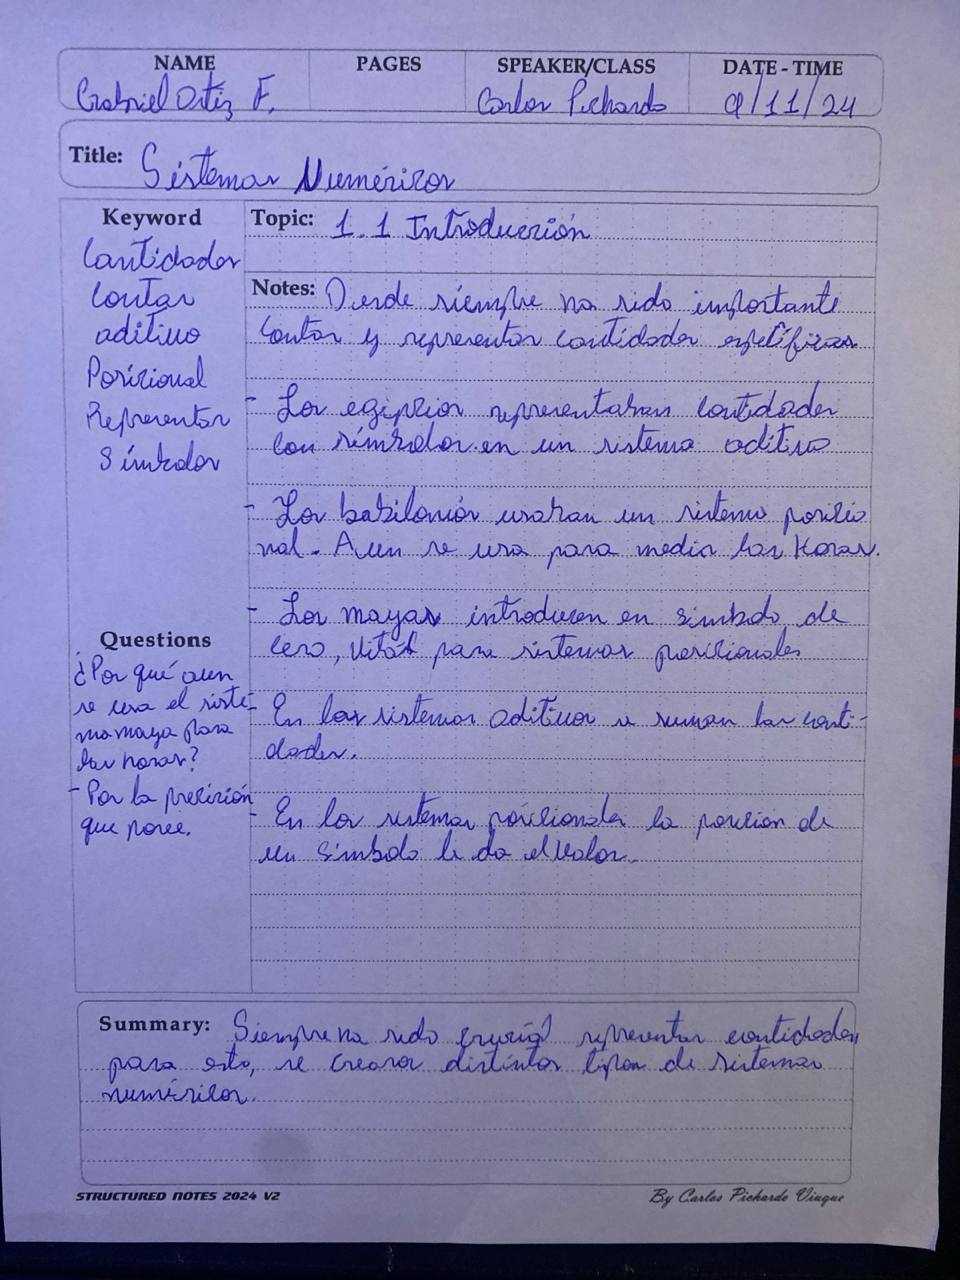 NAME PAGES SPEAKER/CLASS DATE - TIME
Gabriel Ortiz F. Carlos Pichardo 9/11/24
Title: Sistemas Numéricos
Keyword
Cantidades
Contar
aditivo
Posicional
Representar
Símbolos
Topic: 1.1 Introducción
Notes: Desde siempre ha sido importante
contar y representar cantidades específicas
- Los egipcios representaban cantidades
con símbolos en un sistema aditivo
- Los babilonios usaban un sistema posicio
nal. Aun se usa para medir las Horas.
- Los mayas introducen en simbolo de
cero, vital para sistemas posicionales
- En los sistemas aditivos se suman las canti-
dades.
- En los sistemas posicionales la posicion de
un simbolo le da el valor.
Questions
¿Por qué aun
se usa el siste
ma maya para
las horas?
- Por la precisión
que posee.
Summary: Siempre ha sido crucial representar cantidades,
para esto, se crearon distintos tipos de sistemas
numéricos.
STRUCTURED NOTES 2024 V2 By Carlos Pichardo Viuque